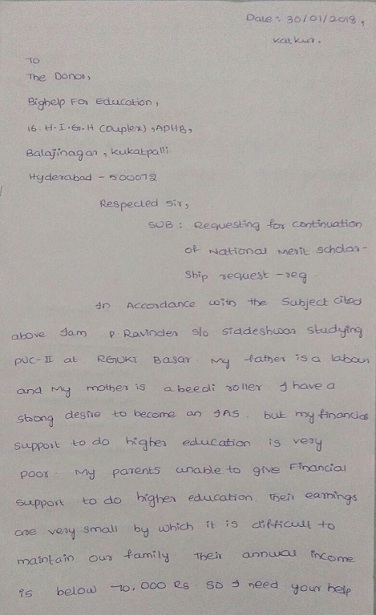 Date: 30/01/2018,
Katkur.
TO
The Donor,
Bighelp For Education,
16. H-I-G.H (Duplex) , APHB,
Balajinagar, Kukatpalli
Hyderabad - 500072
Respected Sir,
SUB: Requesting for continuation
of National Merit Scholar-
ship request -reg
In Accordance with the Subject cited
above Iam P. Ravinder s/o Siddeshwar studying
PUC-II at RGUKT Basar. My father is a labour
and My mother is a beedi roller I have a
strong desire to become an IAS. but my financial
support to do higher education is very
poor. My parents unable to give Financial
support to do higher education. Their earnings
are very small by which it is difficult to
maintain our family Their annual income
is below 70,000 Rs. SO I need your help